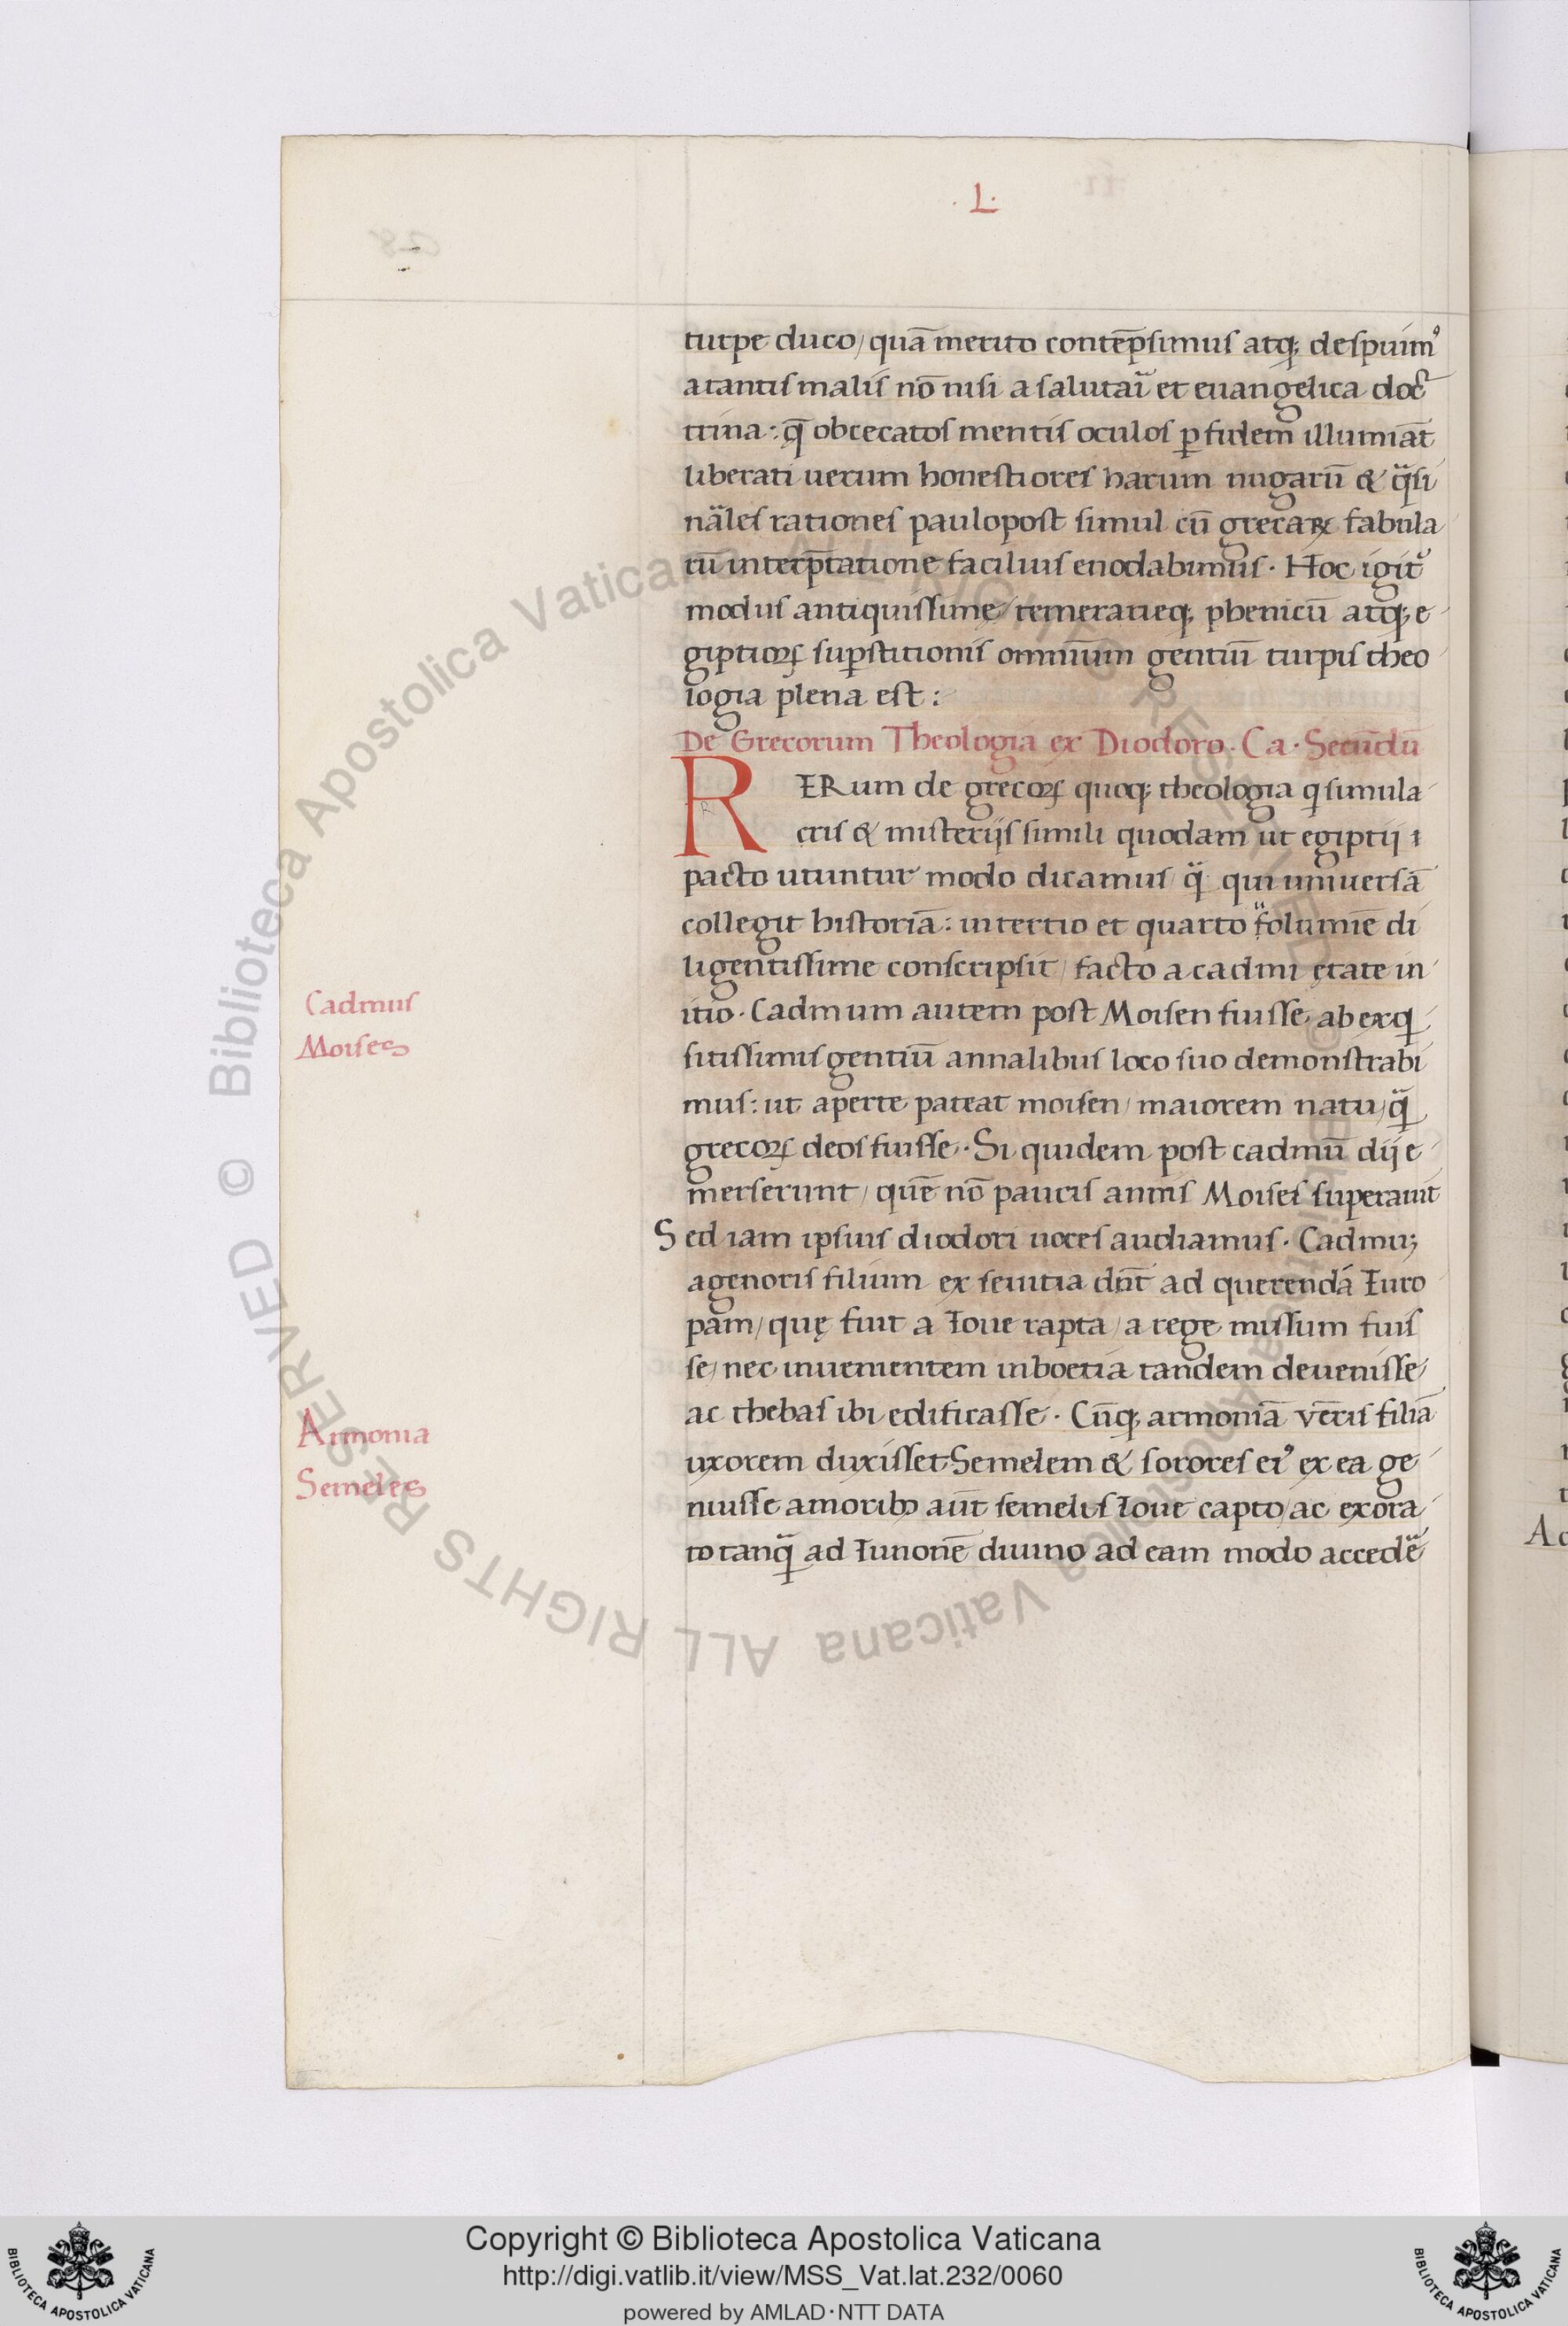 . L.
turpe duco/ quā merito contēp̄simus atq; despuim⁹
a tantis malis nō nisi a salutaī et euangelica doc
trina: q̄ obcecatos mentis oculos ꝑ fidem illumiāt
liberati uerum honestiores harum nugarū & q̈si
nāles rationes paulopost simul cū grecaꝝ fabula
rū interp̄tatione facilius enodabimus. Hoc igit̄
modus antiquissime/ temerarieq; phenicū atq; e
giptioꝝ suꝑstitionis omnium gentiū turpis theo
logia plena est:
De Grecorum Theologia ex Diodoro. Ca. Secūdū
RERum de grecoꝝ quoq; theologia q simula
cris & misterijs simili quodam ut egiptij ⁊
pacto utuntur modo dicamus q̈ qui uniuersā
collegit historiā: in tertio et quarto folumīe di
ligentissime conscripsit/ facto a cadmi ętate in
itio. Cadmum autem post Moisen fuisse ab exq
sitissimis gentiū annalibus loco suo demonstrabi
mus: ut aperte pateat moisen/ maiorem natu/ q̈
grecoꝝ deos fuisse. Si quidem post cadmū dij e
merserunt/ quē nō paucis annis Moises superauit
Sed iam ipsius diodori uoces audiamus. Cadmu;
agenoris filium ex feuitia dn̄t ad querendā Euro
pam/ quę fuit a Ioue rapta/ a rege missum fuis
se/ nec inuenientem in boetia tandem deuenisse
ac thebas ibi edificasse. Cūq; armoniā vēris filiā
uxorem duxisset Semelem & sorores ei⁹ ex ea ge
nuisse amoribꝫ aūt semelis Ioue capto/ ac exora
to tanq̈ ad Iunonē diuino ad eam modo accedē
Cadmus
Moises
Armonia
Semeles
Copyright © Biblioteca Apostolica Vaticana
http://digi.vatlib.it/view/MSS_Vat.lat.232/0060
powered by AMLAD·NTT DATA
BIBLIOTECA APOSTOLICA VATICANA
BIBLIOTECA APOSTOLICA VATICANA
© Biblioteca Apostolica Vaticana ALL RIGHTS RESERVED © Biblioteca Apostolica Vaticana ALL RIGHTS RESERVED